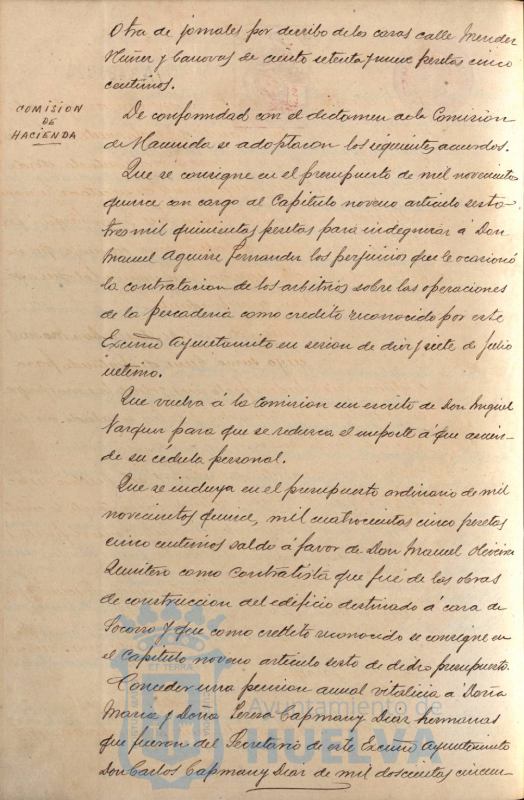 Otra de jornales por derribo de las casas calle Mendez
Nuñez y Canovas de ciento setenta y nueve pesetas cinco
centimos.
COMISION
DE
HACIENDA
De conformidad con el dictamen de la Comision
de Hacienda se adoptaron los siguientes acuerdos.
Que se consigne en el presupuesto de mil novecientos
quince con cargo al Capitulo noveno articulo sexto
tres mil quinientas pesetas para indegnizar á Don
Manuel Aguirre Fernandez los perjuicios que le ocasionó
la contratacion de los arbitrios sobre las operaciones
de la pescaderia como credito reconocido por este
Excmo Ayuntamiento en sesion de diez y siete de Julio
ultimo.
Que vuelva á la Comision un escrito de Don Miguel
Vazquez para que se reduzca el importe á que ascien-
de su cédula personal.
Que se incluya en el presupuesto ordinario de mil
novecientos quince, mil cuatrocientas cinco pesetas
cinco centimos saldo á favor de Don Manuel Oliveira
Quintero como contratista que fué de las obras
de construccion del edificio destinado á casa de
Socorro y que como credito reconocido se consigne en
el Capitulo noveno articulo sexto de dicho presupuesto.
Conceder una pension anual vitalicia á Doña
Maria y Doña Teresa Capmany Diaz hermanas
que fueron del Secretario de este Excmo Ayuntamiento
Don Carlos Capmany Diaz de mil doscientas cincuen-
Ayuntamiento de
HUELVA